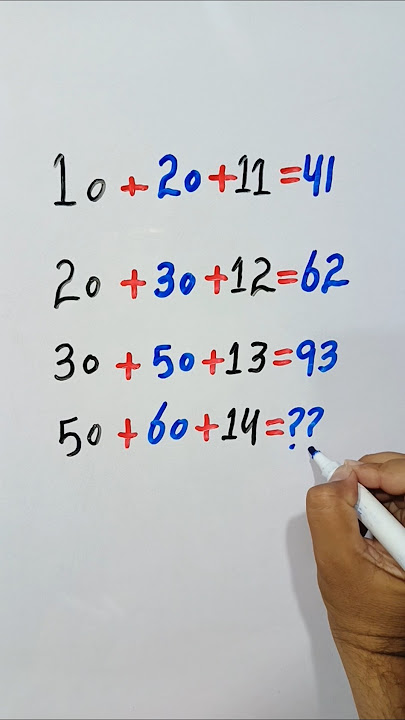 10 + 20 + 11 = 41
20 + 30 + 12 = 62
30 + 50 + 13 = 93
50 + 60 + 14 = ??